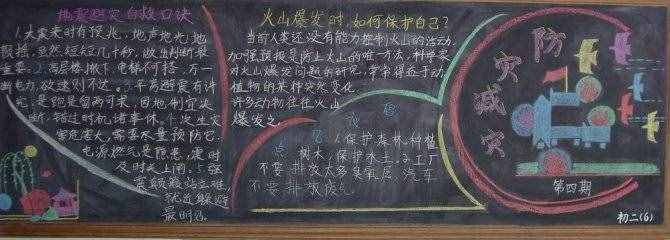 地震避灾自救口诀
1.大震来时有预兆,地声地光地
颤摇,虽然短短几十秒,做出判断最
重要.2.高层楼撤下,电梯不可搭,万一
断电力,欲速则不达.3.平房避震有讲
究,是跑是留两可求,因地制宜决
断,错过时机诸事休.4.次生灾
害危害大,需要尽量预防它,
电源燃气是隐患,震时
及时关上闸.5.强
震颠簸站立难,
就近躲避
最明智.
火山爆发时,如何保护自己?
当前人类还没有能力控制火山的活动,
加强预报是防止火山的唯一方法,科学家
对火山爆发问题的研究,常常得益于动
植物的某种突然变化
许多动物往往火山
爆发之
1.保护森林,种植
树木,保护水土,2.工厂
不要排放太多臭氧层 汽车
不要排放废气
防
灾
减
灾
第四期
初二(6)